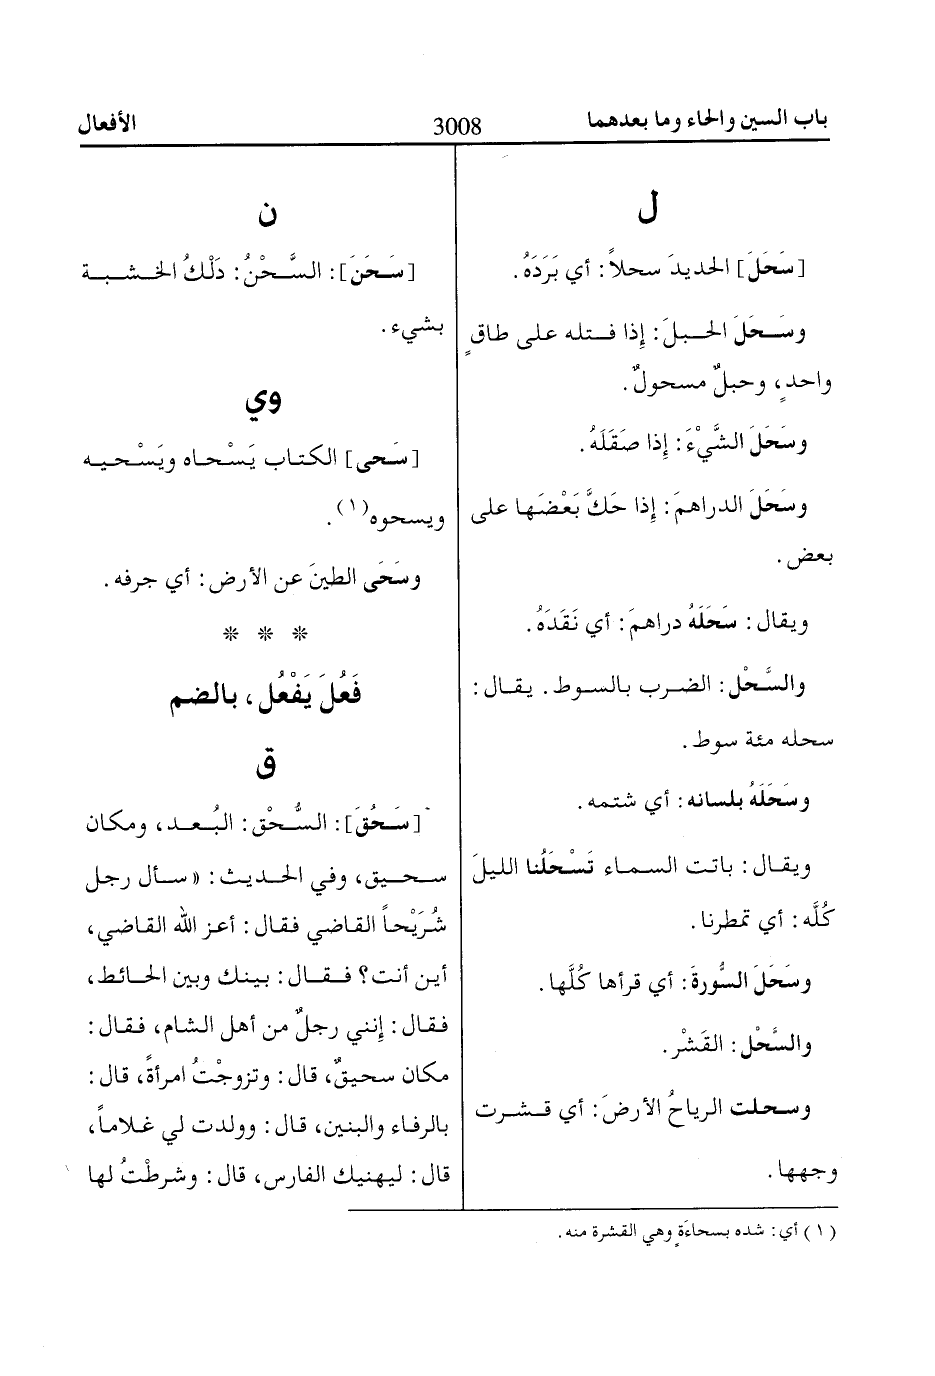 باب السين والحاء وما بعدهما
3008
الأفعال
ل
[سَحَلَ] الحديدَ سحلاً: أي بَرَدَهُ.
وسَحَلَ الحبلَ: إِذا فتله على طاقٍ
واحدٍ، وحبلٌ مسحولٌ.
وسَحَلَ الشَّيْءَ: إِذا صَقَلَهُ.
وسَحَلَ الدراهمَ: إِذا حَكَّ بَعْضَها على
بعض.
ويقال: سَحَلَهُ دراهمَ: أي نَقَدَهُ.
والسَّحْل: الضرب بالسوط. يقال:
سحله مئة سوط.
وسَحَلَهُ بلسانه: أي شتمه.
ويقال: باتت السماء تَسْحَلُنا الليلَ
كُلَّه: أي تمطرنا.
وسَحَلَ السُّورةَ: أي قرأها كُلَّها.
والسَّحْل: القَشْر.
وسحلت الرياحُ الأرضَ: أي قشرت
وجهها.
ن
[سَحَنَ]: السَّحْنُ: دَلْكُ الخشبة
بشيء.
وي
[سَحى] الكتاب يَسْحاه ويَسْحيه
ويسحوه(١).
وسَحَى الطينَ عن الأرض: أي جرفه.
* * *
فَعُلَ يَفْعُل، بالضم
ق
[سَحُقَ]: السُّحْق: البُعد، ومكان
سحيق، وفي الحديث: «سأل رجل
شُرَيْحاً القاضي فقال: أعز الله القاضي،
أين أنت؟ فقال: بينك وبين الحائط،
فقال: إِنني رجلٌ من أهل الشام، فقال:
مكان سحيقٌ، قال: وتزوجْتُ امرأةً، قال:
بالرفاء والبنين، قال: وولدت لي غلاماً،
قال: ليهنيك الفارس، قال: وشرطْتُ لها
(١) أي: شده بسحاءَةٍ وهي القشرة منه.